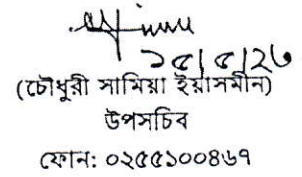 ১৫/৫/২৬
(চৌধুরী সামিয়া ইয়াসমীন)
উপসচিব
ফোন: ০২৫৫১০০৪৬৭